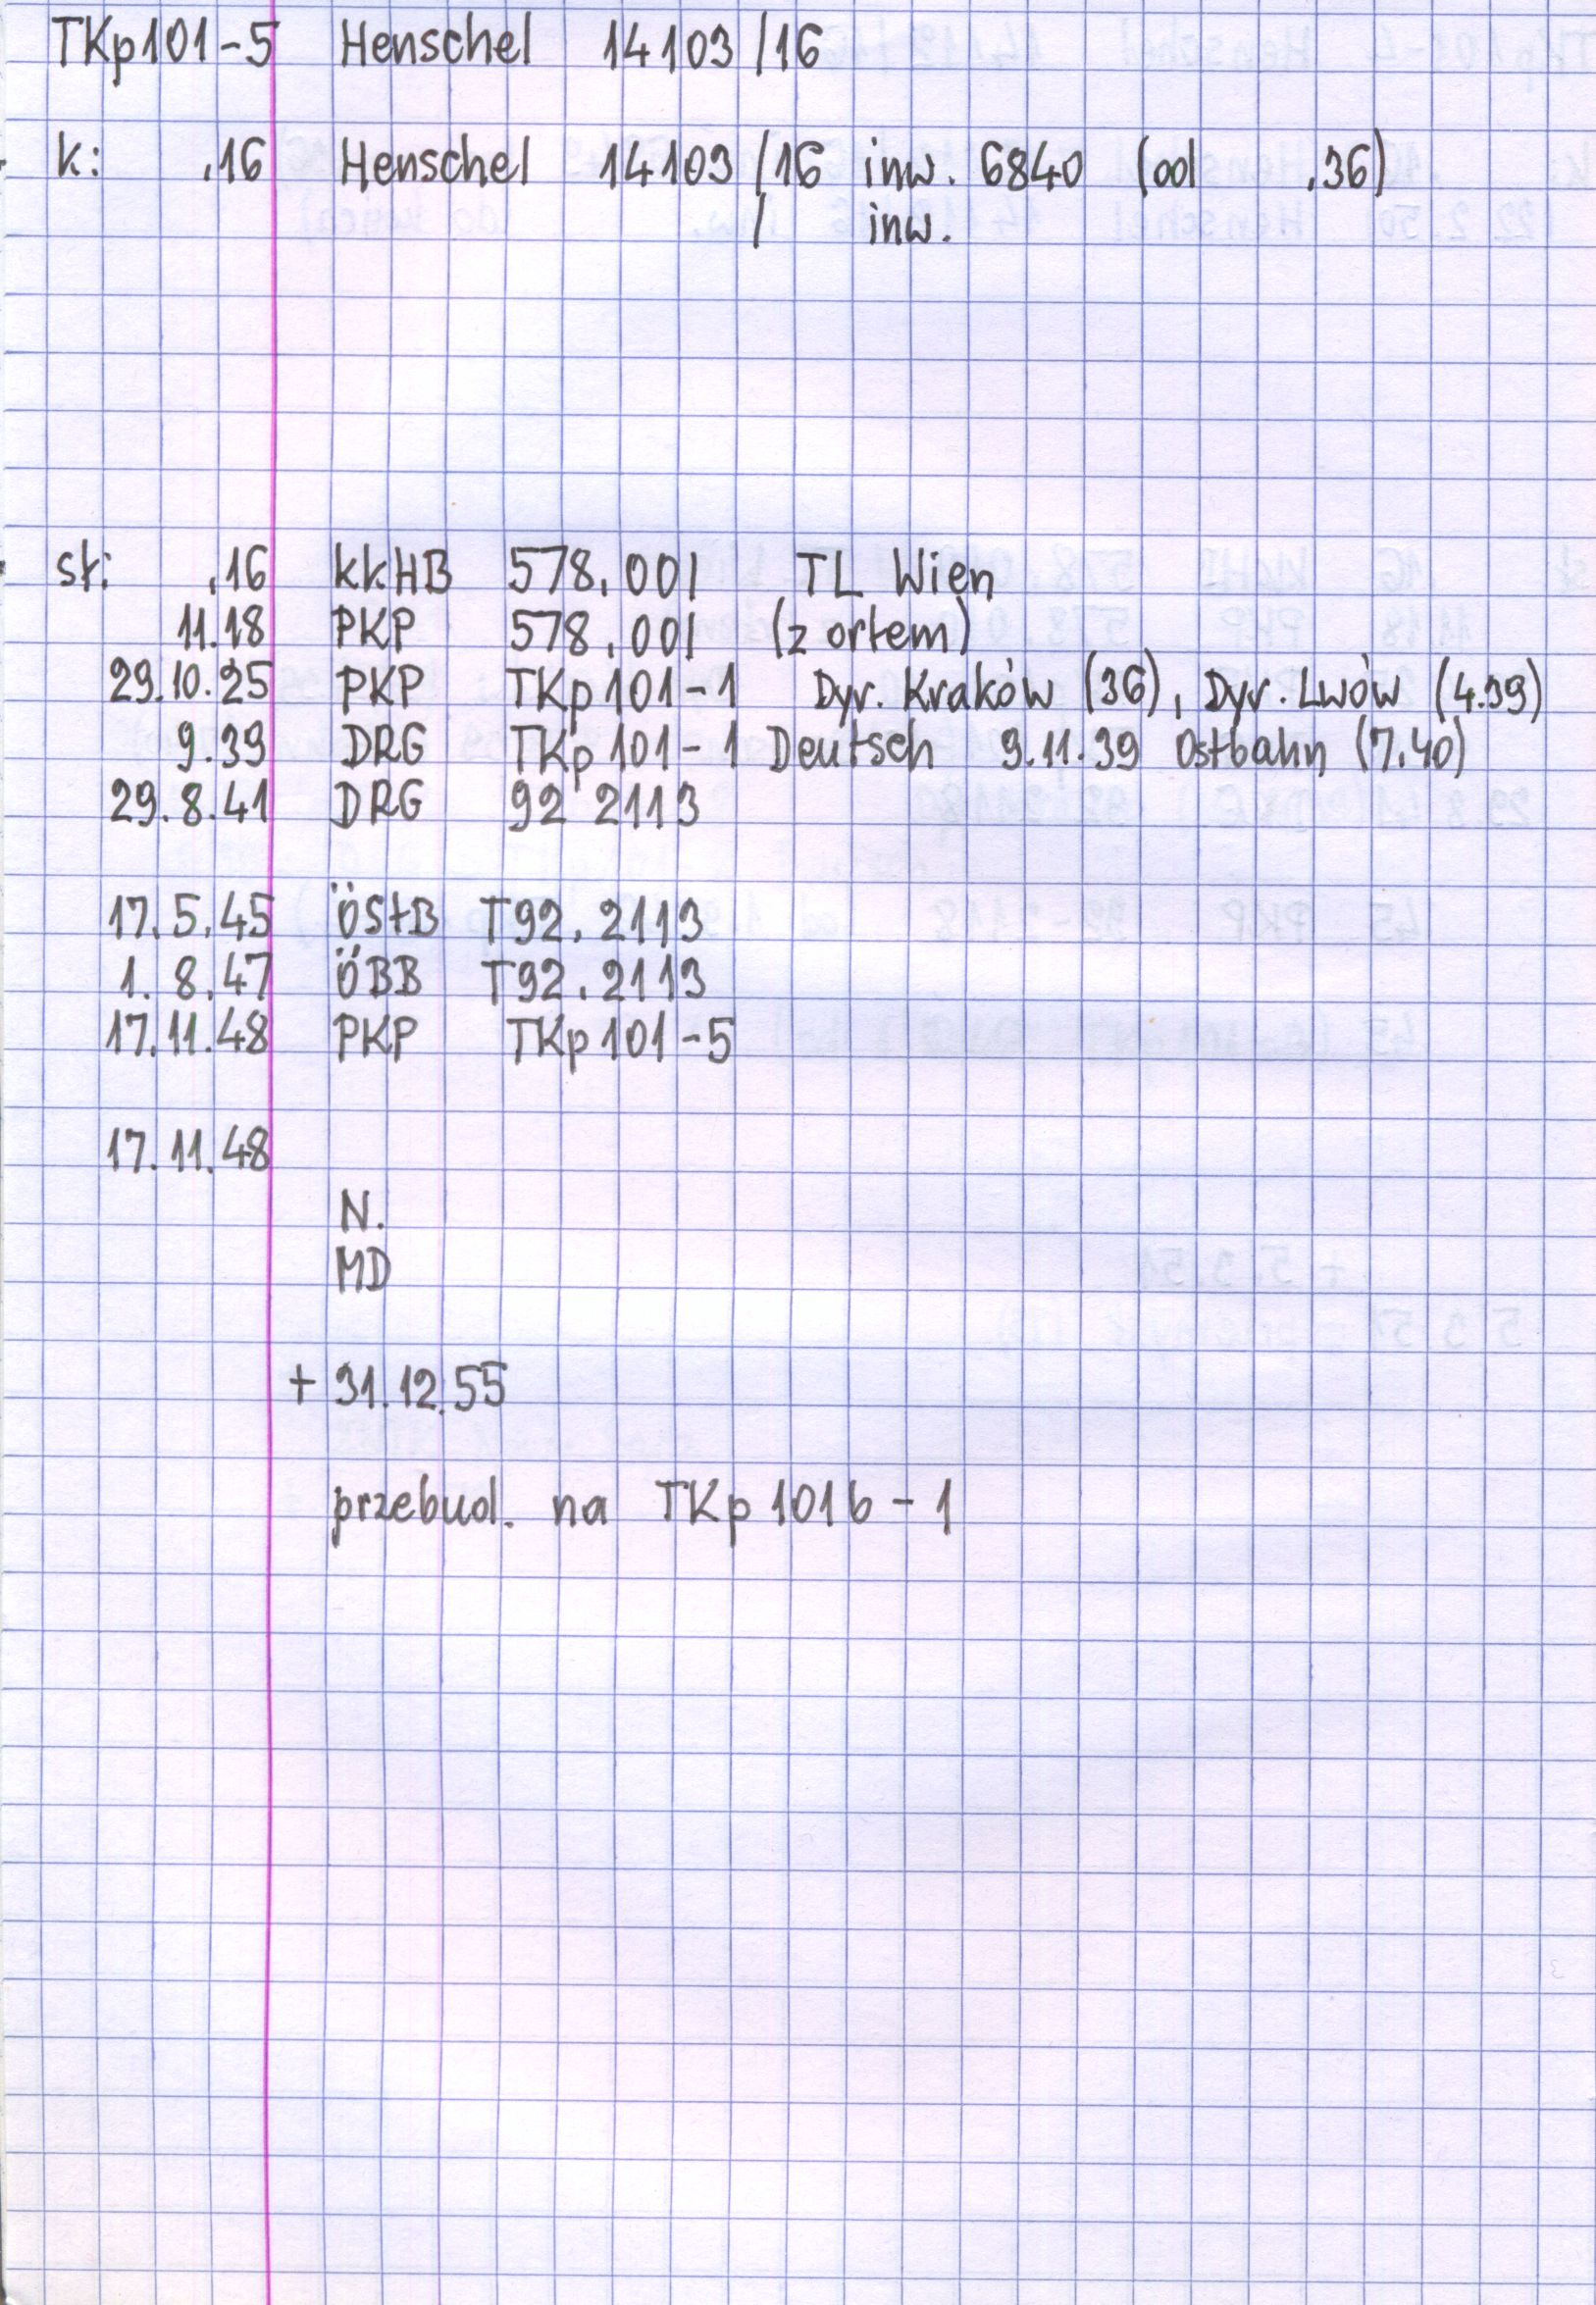 TKp101-5 Henschel 14103/16
k: .16 Henschel 14103/16 inw. 6840 (od .36)
/ inw.
st: .16 kkHB 578.001 TL Wien
11.18 PKP 578.001 (z ortem)
29.10.25 PKP TKp101-1 Dyr. Kraków (36), Dyr. Lwów (4.39)
9.39 DRG TKp101-1 Deutsch 9.11.39 Ostbahn (7.40)
29.8.41 DRG 92 2113
17.5.45 ÖStB T92.2113
1.8.47 ÖBB T92.2113
17.11.48 PKP TKp101-5
17.11.48
N.
MD
+ 31.12.55
przebud. na TKp101b-1